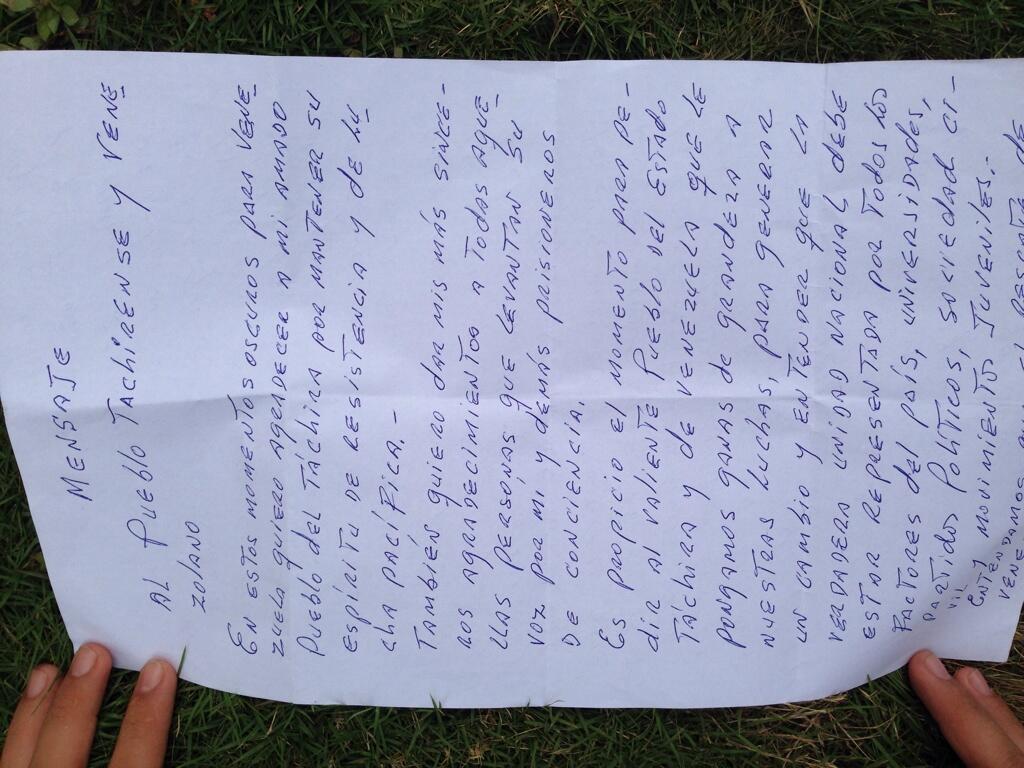 MENSAJE
AL PUEBLO TACHIRENSE Y VENE
ZOLANO
EN ESTOS MOMENTOS OSCUROS PARA VENE
ZUELA QUIERO AGRADECER A MI AMADO
PUEBLO DEL TÁCHIRA POR MANTENER SU
ESPÍRITU DE RESISTENCIA Y DE LU
CHA PACÍFICA.-
TAMBIÉN QUIERO DAR MIS MÁS SINCE-
ROS AGRADECIMIENTOS A TODAS AQUE-
LLAS PERSONAS QUE LEVANTAN SU
VOZ POR MÍ Y DEMÁS PRISIONEROS
DE CONCIENCIA.
ES PROPICIO EL MOMENTO PARA PE-
DIR AL VALIENTE PUEBLO DEL ESTADO
TÁCHIRA Y DE VENEZUELA QUE LE
PONGAMOS GANAS DE GRANDEZA A
NUESTRAS LUCHAS, PARA GENERAR
UN CAMBIO Y ENTENDER QUE LA
VERDADERA UNIDAD NACIONAL DEBE
ESTAR REPRESENTADA POR TODOS LOS
FACTORES DEL PAÍS, UNIVERSIDADES,
PARTIDOS POLÍTICOS, SOCIEDAD CI-
VIL Y MOVIMIENTOS JUVENILES.-
ENTENDAMOS QUE EL RESCATE DE